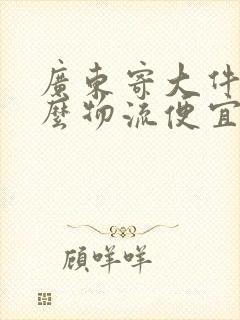 廣東寄大件
麼物流便宜
顧咩咩